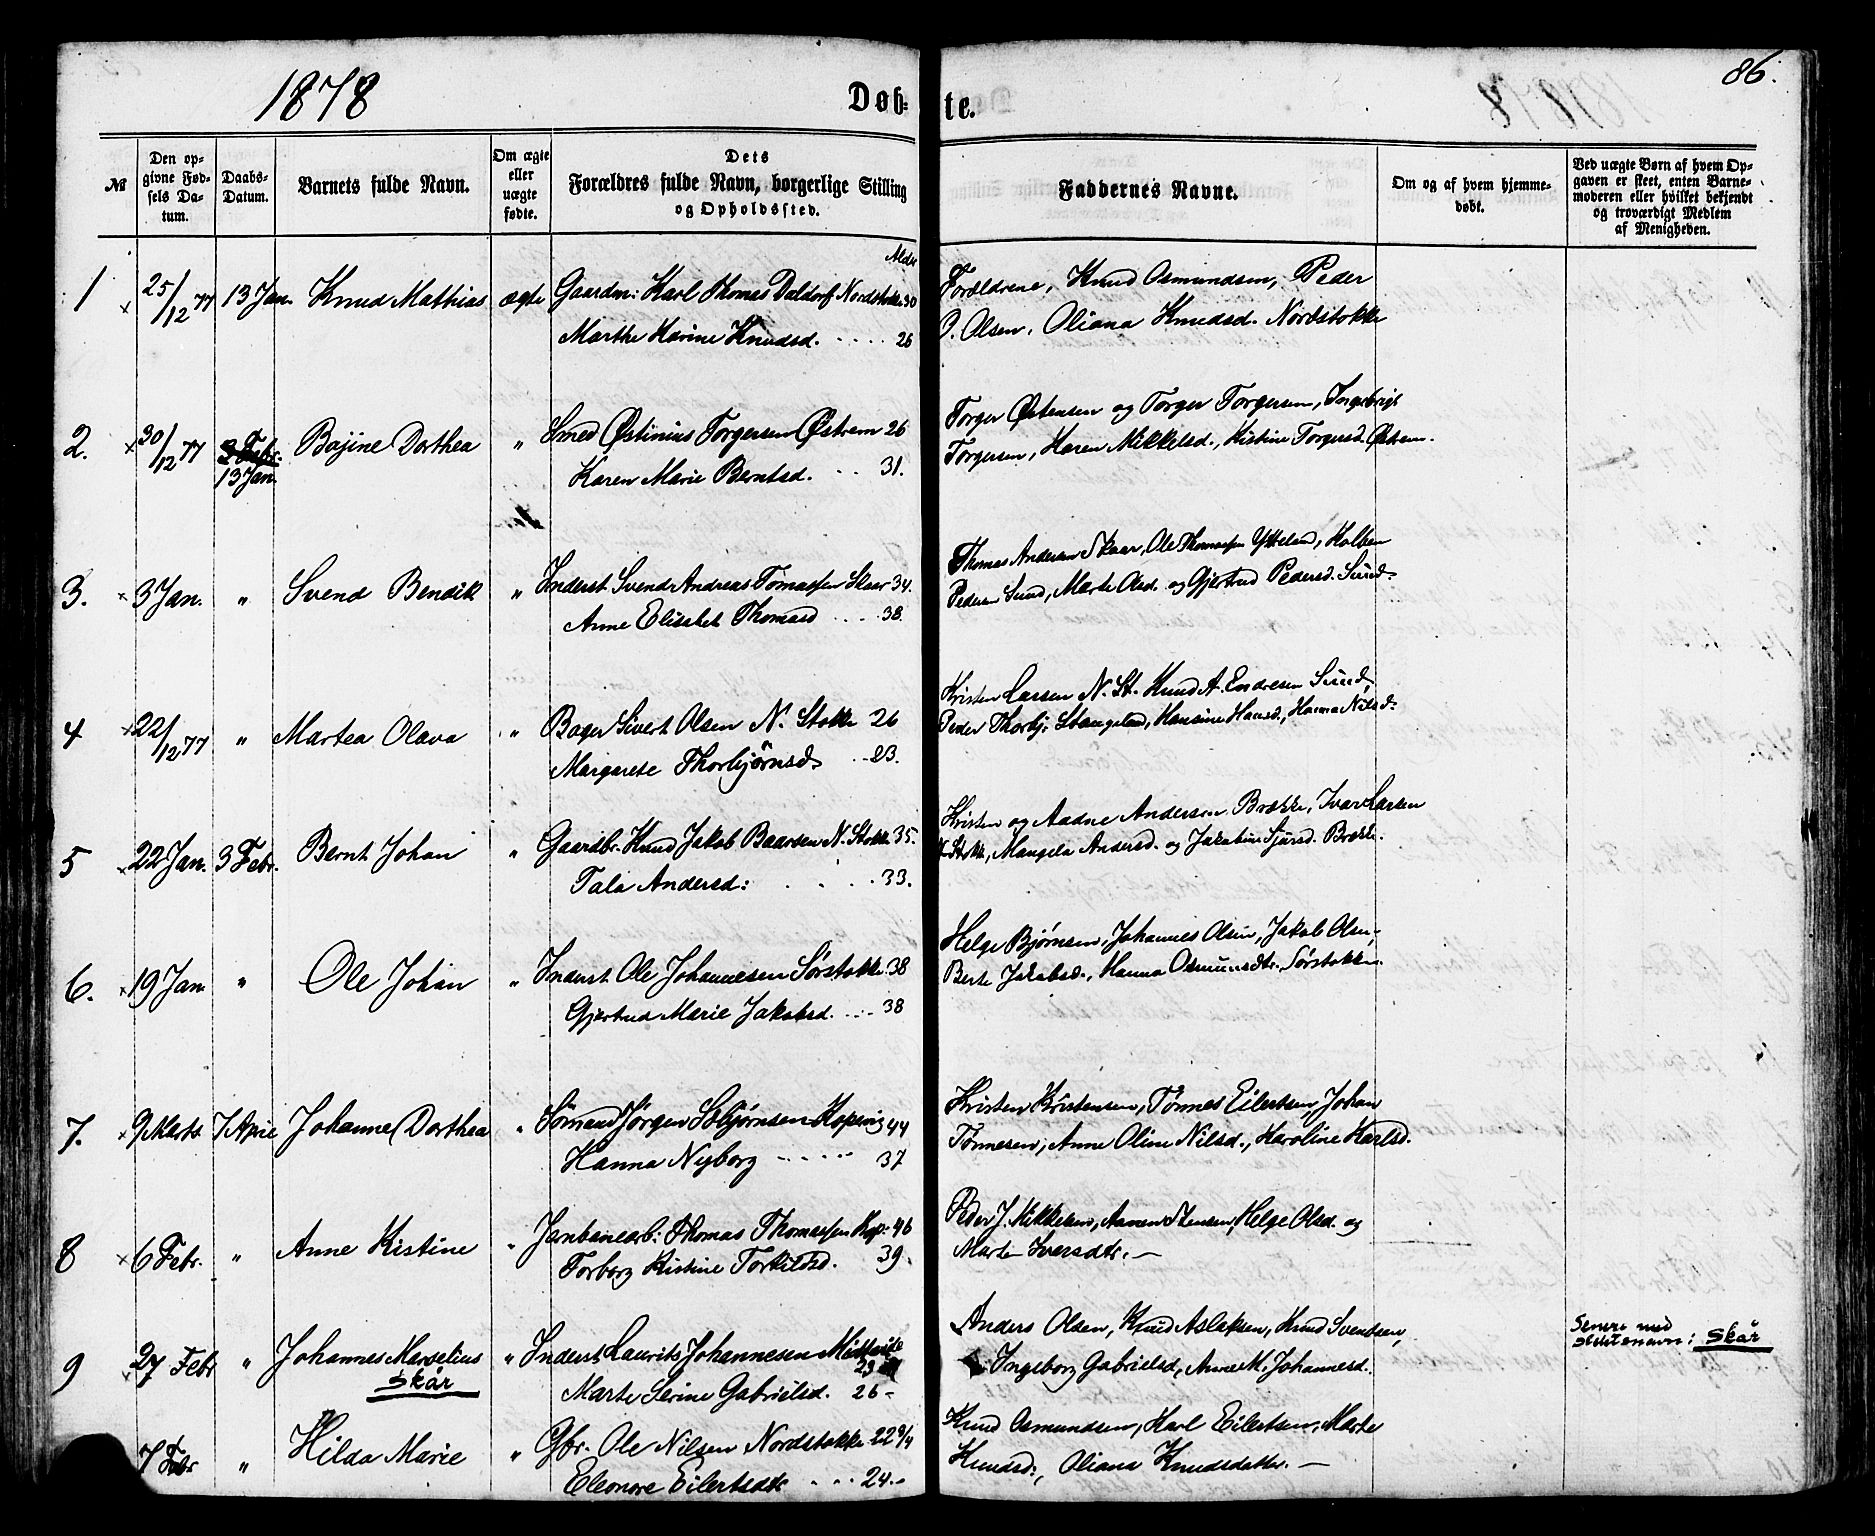 1878
Døb-
te.
86.
№
Den op-
givne Fød-
sels Da-
tum.
Daabs-
Datum.
Barnets fulde Navn.
Om ægte
eller
uægte
fødte.
Dets
Forældres fulde Navn, borgerlige Stilling
og Opholdssted.
Faddernes Navne.
Om og af hvem hjemme-
døbt.
Ved uægte Børn af hvem Op-
gaven er skeet, enten Barne-
moderen eller hvilket bekjendt
og troværdigt Medlem
af Menigheden.
Alder
1 × 25/12 77 13 Jan. Knud Mathias ægte Gaardm: Karl Thomas Daldorf Nordstokke 30
Marthe Karine Knudsd. 26
Forældrene, Knud Osmundsen, Peder
O. Olsen, Oliana Knudsd. Nordstokke
2. × 30/12 77 3 Febr. Bojine Dorthea " Smed Østinius Torgersen Østrem 26
13 Jan.
Karen Marie Berntsd. 31.
Torger Østensen og Torger Torgersen, Ingebrigt
Torgersen, Karen Mikkelsd., Kistine Torgersd. Østrem.
3. × 3 Jan. " Svend Bendik " Inderst Svend Andreas Tomassen Skaar 34.
Anne Elisabet Thomasd 38.
Thomas Andersen Skaar, Ole Thomassen Ytteland, Holben
Pedersen Sund, Marte Olsd. og Gjertrud Pedersd. Sund.
4 × 22/12 77 " Martea Olava " Bager Sivert Olsen N. Stokke 26
Margarete Thorbjørnsd. 23.
Kristen Larsen N. St. Knud A. Endresen Sund
Peder Thorbj. Stangeland, Hansine Hansd., Hanna Nilsd.
5 × 22 Jan. 3 Febr. Bernt Johan " Gaardbr. Knud Jakob Baarsen N. Stokke 35.
Tala Andersd: 33.
Kristen og Aadne Andersen Brække, Ivar Larsen
N. Stokk, Mangela Andersd. og Jakobine Sjursd. Brække.
6. × 19 Jan. " Ole Johan " Inderst. Ole Johannesen Sørstokke 38
Gjertrud Marie Jakobsd. 38
Helge Bjørnsen, Johannes Olsen, Jakob Olsen,
Berte Jakobsd., Hanna Osmundsdtr. Sørstokke.
7. × 9 Marts 7 April Johanne Dorthea " Sømand Jørgen Esbjørnsen Kopervig 44
Hanna Nyborg 37
Kristen Kristensen, Tønnes Eilertsen, Johan
Tønnesen, Anne Oline Nilsd., Karoline Karlsd.
8 × 6 Febr. " Anne Kistine " Jernbanearb: Thomas Thomassen Kop: 46
Torborg Kistine Torkildsd. 39.
Peder J. Mikkelsen, Helge Olsd. og
Marte Iversdtr. —
9 × 27 Febr " Johannes Marselius " Inderst Laurits Johannesen
Skår
23
Marte Serine Gabrielsd. 26 -
Anders Olsen, Knud Aslaksen, Knud Svendsen,
Ingeborg Gabrielsd, Anne M. Johannesd.
Senere med
slektsnavn: Skår
7 Febr " Hilda Marie " Gbr. Ole Nilsen Nordstokke 22 9/4
Eleonore Eilertsdtr 24.-
Knud Osmundsen, Karl Eilertsen, Marte
Knudsd:, Oliana Knudsdatter. —